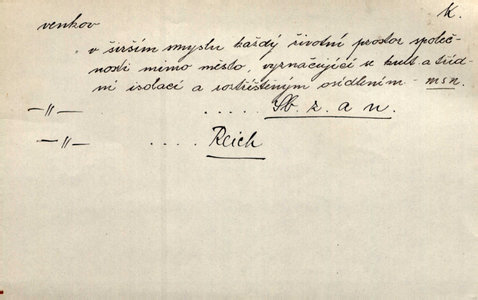 K.
venkov
v širším smyslu každý životní prostor společ-
nosti mimo město, vyznačující se kult. a tříd-
ní isolací a roztříštěným osídlením - msn.
—〃— ..... Sb. z. a n.
—〃— .... Reich